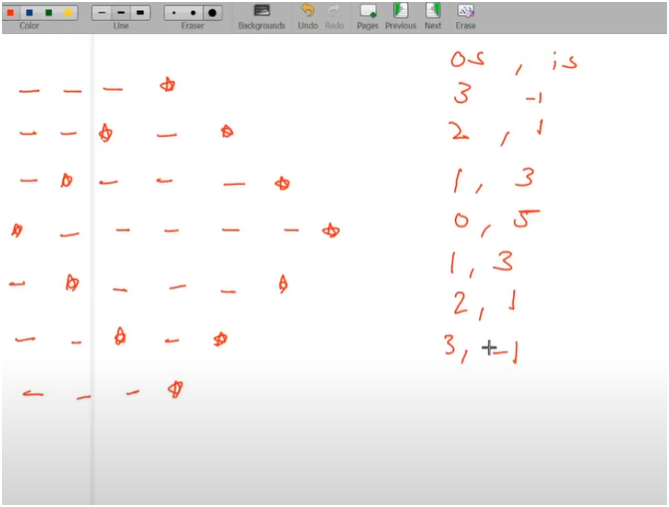 Color Line Eraser Backgrounds Undo Redo Pages Previous Next Erase
os, is
3 -1
2, 1
1, 3
0, 5
1, 3
2, 1
3, -1